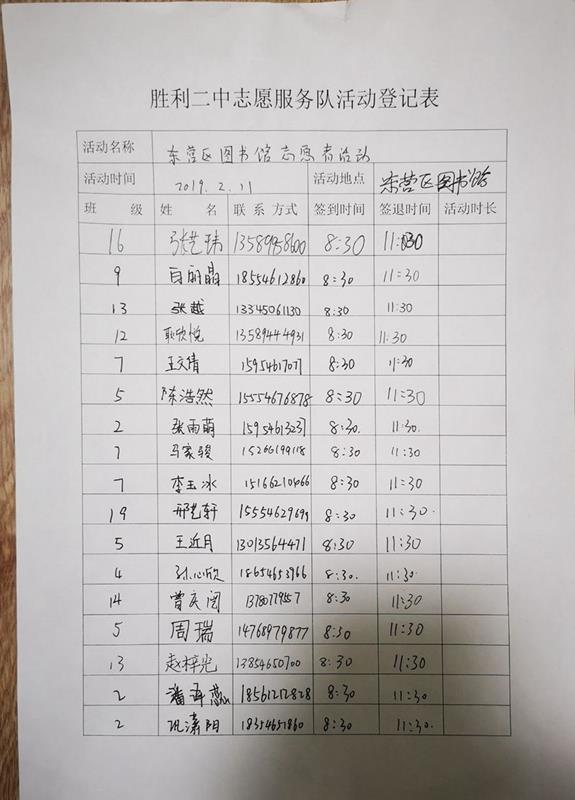 胜利二中志愿服务队活动登记表
活动名称 东营区图书馆志愿者活动
活动时间 2019.2.11 活动地点 东营区图书馆
班 级 姓 名 联 系 方式 签到时间 签退时间 活动时长
16 张艺 8:30 11:30
9 白丽晶 18554612860 8:30 11:30
13 张越 13345061130 8:30 11:30
12 耿欣悦 13589444931 8:30 11:30
7 王文倩 15954617071 8:30 11:30
5 陈浩然 15554676878 8:30 11:30
2 张雨萌 15954613237 8:30. 11:30.
7 马家骏 15266199118 8:30 11:30
7 李玉冰 8:30 11:30
19 邢艺轩 15554627699 8:30 11:30.
5 王近月 13013564471 8:30 11:30
4 孙心欣 18654653766 8:30. 11:30.
14 曹庆闵 8:30 11:30
5 周瑞 14768979877 8:30 11:30
13 赵梓光 13854650700 8:30 11:30
2 潘泽蕊 18561212828 8:30 11:30
2 巩潇阳 18354651860 8:30 11:30.